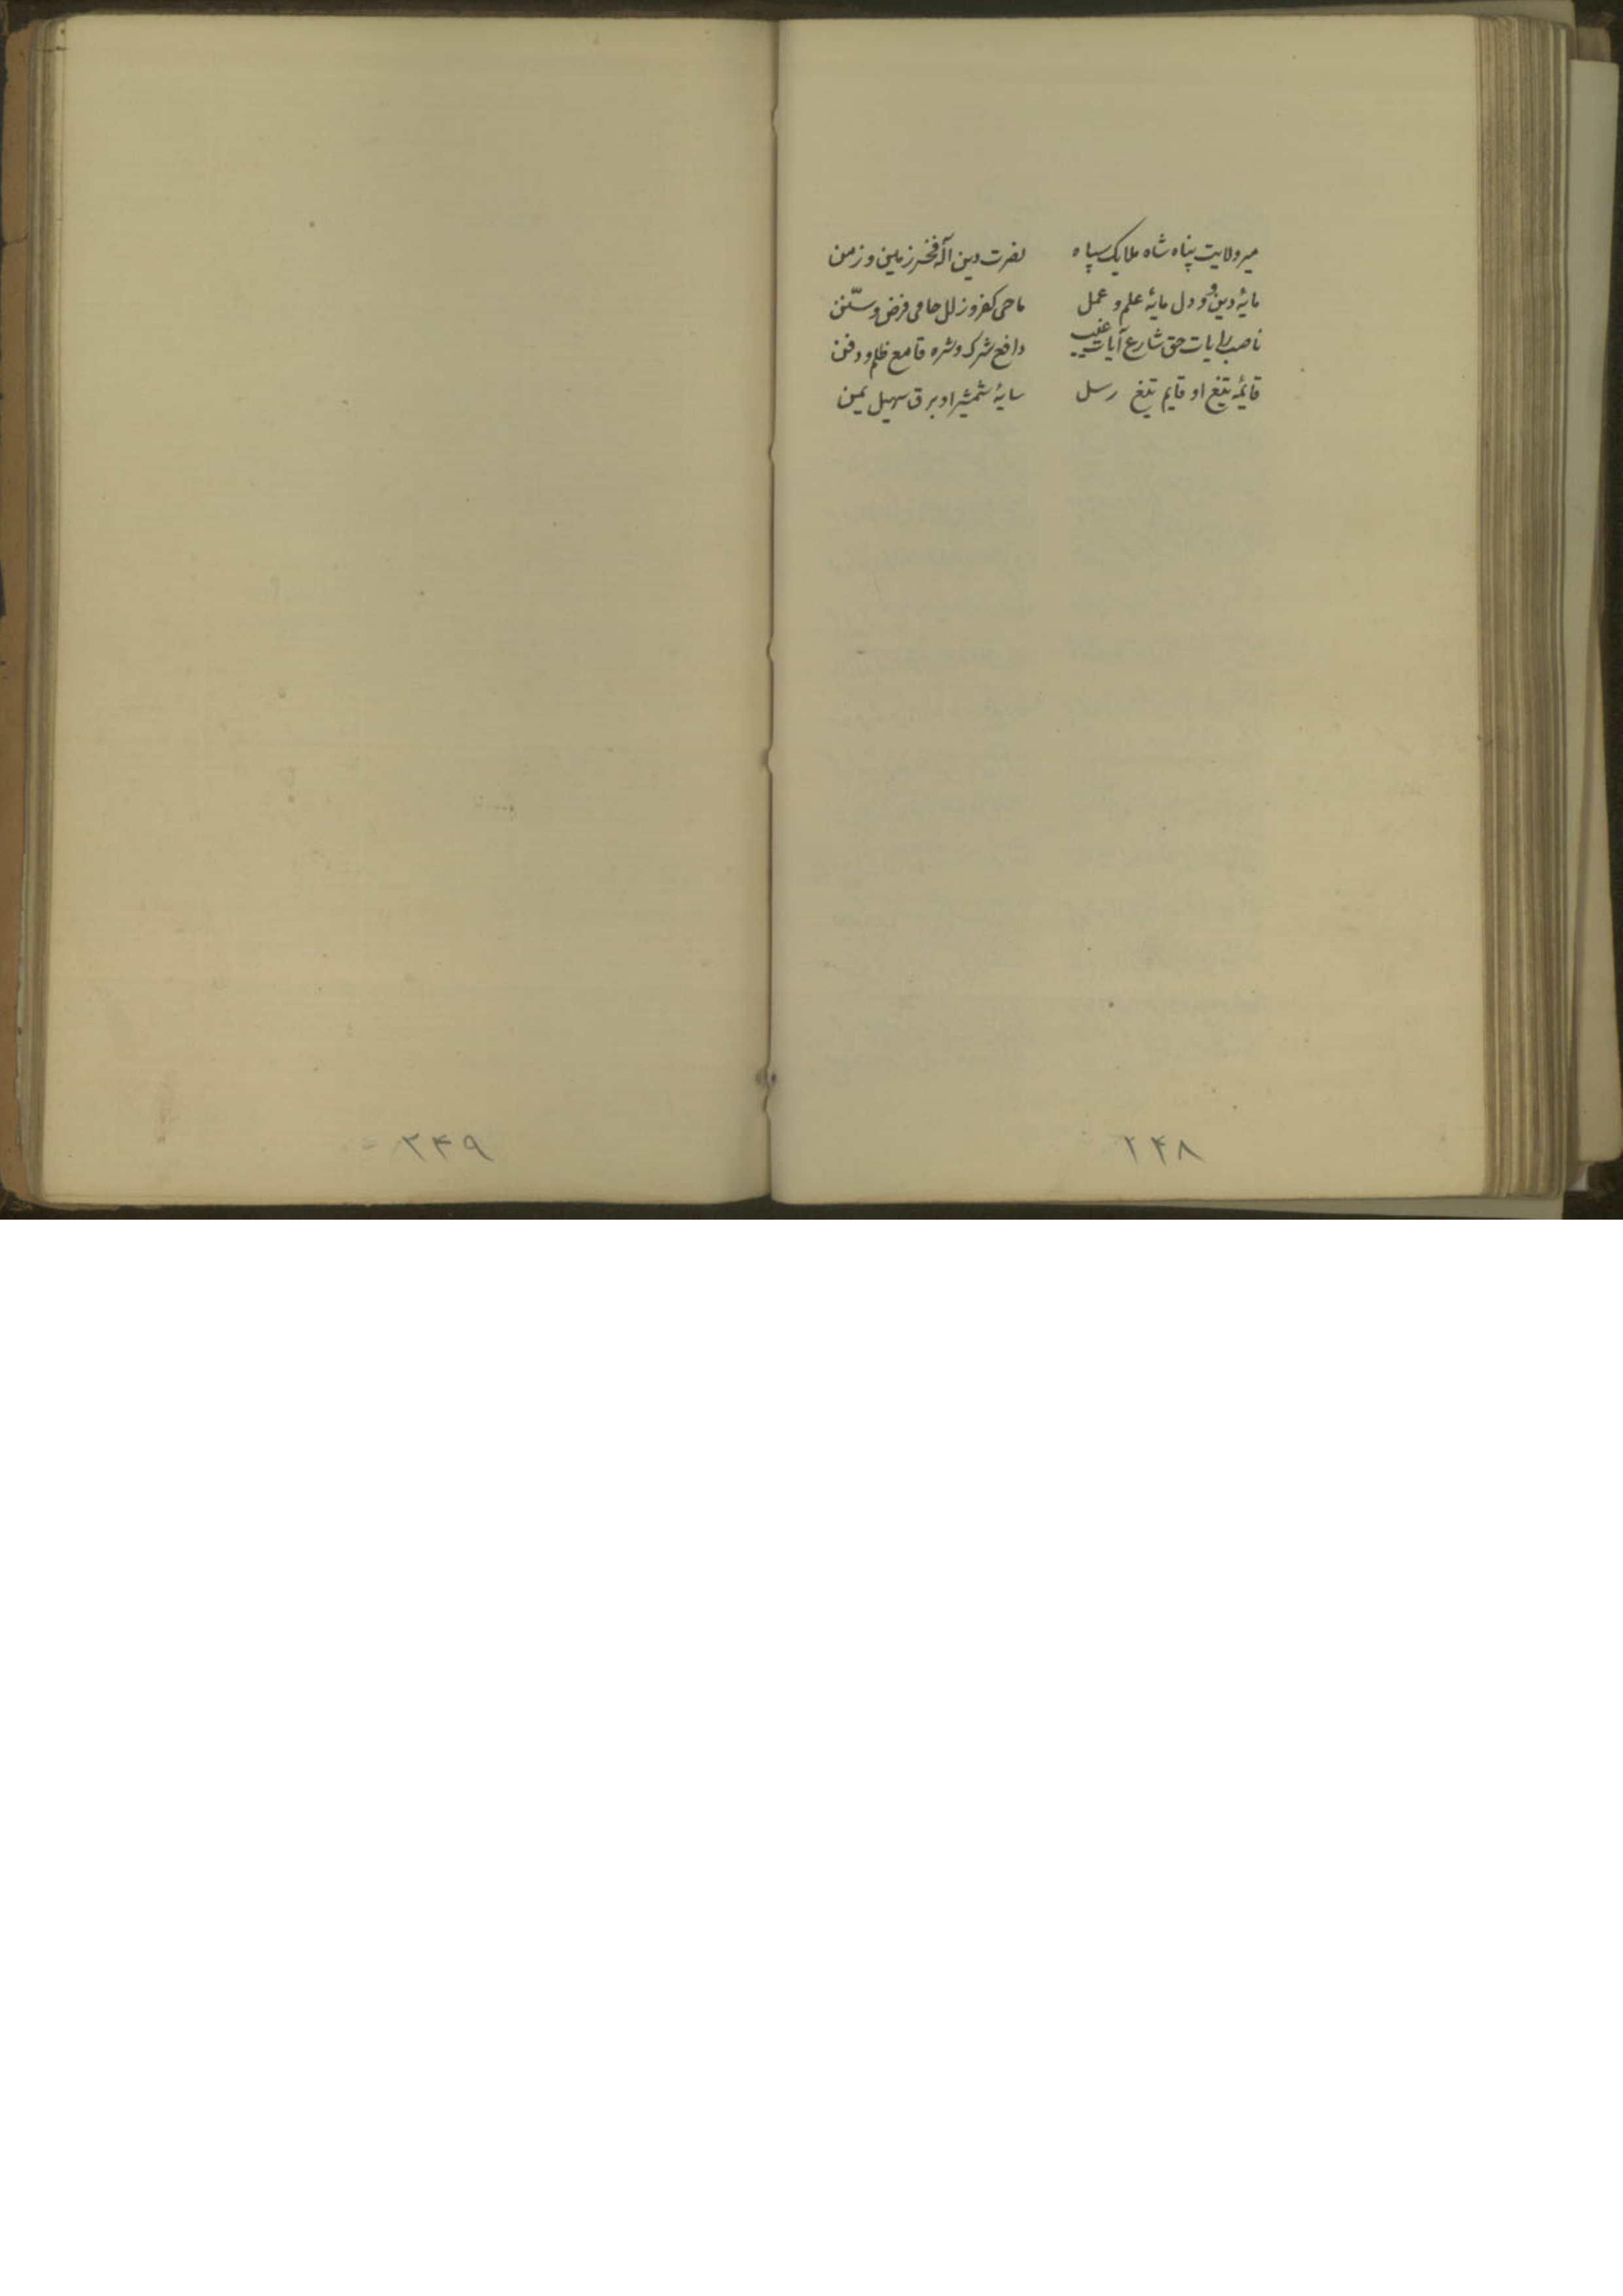 میر ولایت پناه شاه ملایک سپاه نصرت دین آله فخر زمین و زمن
مایۀ دین و دل مایۀ علم و عمل ماحی کفر و زلل حامی فرض و سنّن
ناصب رایات حق شارع آیات غیب دافع شرک و شره قامع ظلم و فتن
قایمۀ تیغ او قایم تیغ رسل سایۀ شمشیر او برق سهیل یمن
۲۴۸
۲۴۹